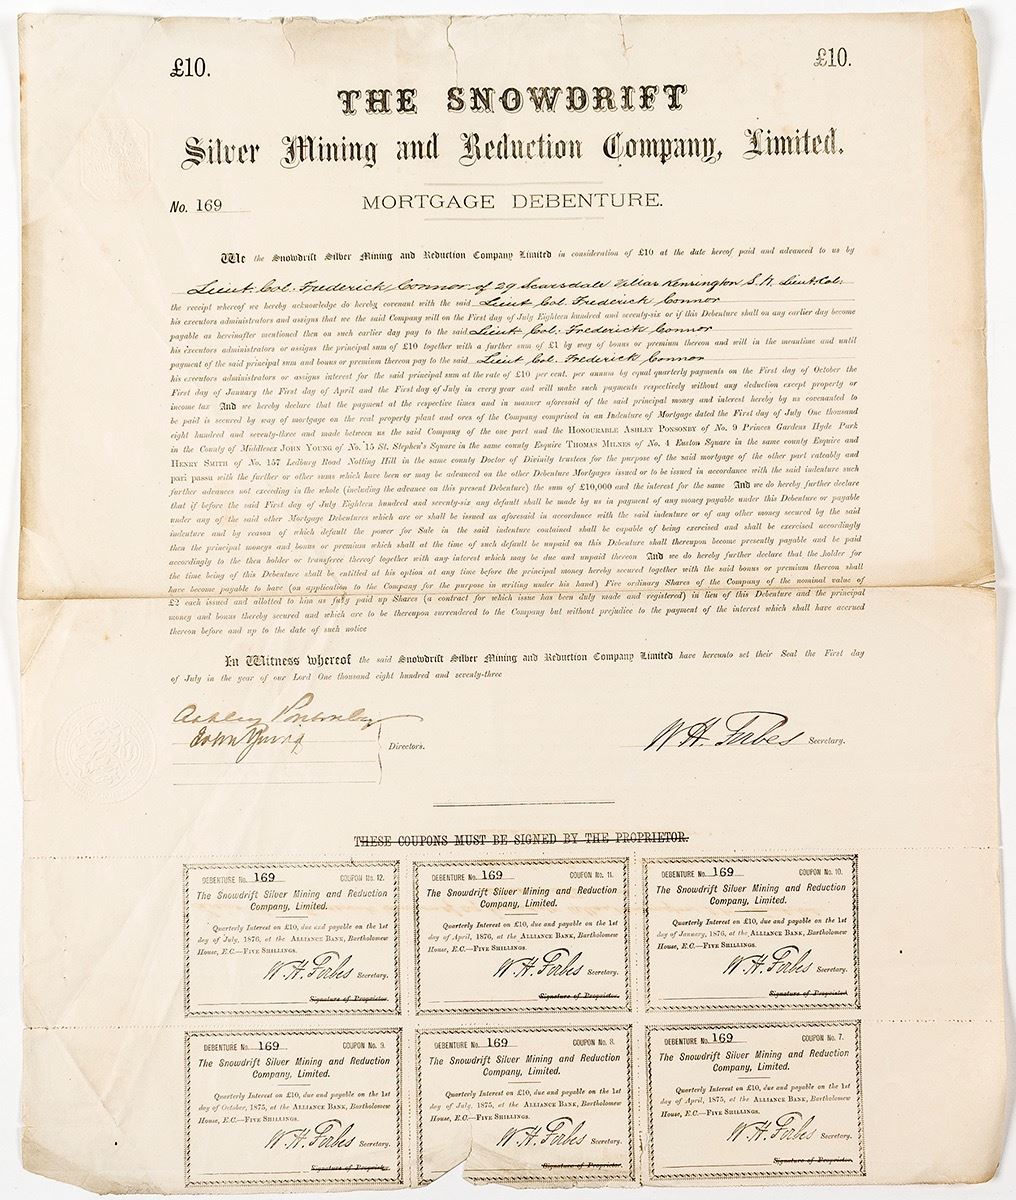 £10.
£10.
THE SNOWDRIFT
Silver Mining and Reduction Company, Limited.
No. 169
MORTGAGE DEBENTURE.
We the Snowdrift Silver Mining and Reduction Company Limited in consideration of £10 at the date hereof paid and advanced to us by
Lieut. Col. Frederick Connor of 29 Scarsdale Villas Kensington S.W. Lieut. Col.
the receipt whereof we hereby acknowledge do hereby covenant with the said Lieut Col. Frederick Connor
his executors administrators and assigns that we the said Company will on the First day of July Eighteen hundred and seventy-six or if this Debenture shall on any earlier day become
payable as hereinafter mentioned then on such earlier day pay to the said Lieut Col. Frederick Connor
his executors administrators or assigns the principal sum of £10 together with a further sum of £1 by way of bonus or premium thereon and will in the meantime and until
payment of the said principal sum and bonus or premium thereon pay to the said Lieut Col. Frederick Connor
his executors administrators or assigns interest for the said principal sum at the rate of £10 per cent. per annum by equal quarterly payments on the First day of October the
First day of January the First day of April and the First day of July in every year and will make such payments respectively without any deduction except property or
income tax And we hereby declare that the payment at the respective times and in manner aforesaid of the said principal money and interest hereby by us covenanted to
be paid is secured by way of mortgage on the real property plant and ores of the Company comprised in an Indenture of Mortgage dated the First day of July One thousand
eight hundred and seventy-three and made between us the said Company of the one part and the HONOURABLE ASHLEY PONSONBY of No. 9 Princes Gardens Hyde Park
in the County of Middlesex JOHN YOUNG of No. 15 St. Stephen's Square in the same county Esquire THOMAS MILNES of No. 4 Euston Square in the same county Esquire and
HENRY SMITH of No. 157 Ledbury Road Notting Hill in the same county Doctor of Divinity trustees for the purpose of the said mortgage of the other part rateably and
pari passu with the further or other sums which have been or may be advanced on the other Debenture Mortgages issued or to be issued in accordance with the said indenture such
further advances not exceeding in the whole (including the advance on this present Debenture) the sum of £10,000 and the interest for the same And we do hereby further declare
that if before the said First day of July Eighteen hundred and seventy-six any default shall be made by us in payment of any money payable under this Debenture or payable
under any of the said other Mortgage Debentures which are or shall be issued as aforesaid in accordance with the said indenture or of any other money secured by the said
indenture and by reason of which default the power for Sale in the said indenture contained shall be capable of being exercised and shall be exercised accordingly
then the principal moneys and bonus or premium which shall at the time of such default be unpaid on this Debenture shall thereupon become presently payable and be paid
accordingly to the then holder or transferee thereof together with any interest which may be due and unpaid thereon And we do hereby further declare that the holder for
the time being of this Debenture shall be entitled at his option at any time before the principal money hereby secured together with the said bonus or premium thereon shall
have become payable to have (on application to the Company for the purpose in writing under his hand) Five ordinary Shares of the Company of the nominal value of
£2 each issued and allotted to him as fully paid up Shares (a contract for which issue has been duly made and registered) in lieu of this Debenture and the principal
money and bonus thereby secured and which are to be thereupon surrendered to the Company but without prejudice to the payment of the interest which shall have accrued
thereon before and up to the date of such notice
In Witness whereof the said Snowdrift Silver Mining and Reduction Company Limited have hereunto set their Seal the First day
of July in the year of our Lord One thousand eight hundred and seventy-three
Ashley Ponsonby
John Young
Directors.
W. H. Forbes Secretary.
THESE COUPONS MUST BE SIGNED BY THE PROPRIETOR.
DEBENTURE No. 169 COUPON No. 12.
The Snowdrift Silver Mining and Reduction
Company, Limited.
Quarterly Interest on £10, due and payable on the 1st
day of July, 1876, at the ALLIANCE BANK, Bartholomew
House, E.C.—FIVE SHILLINGS.
W. H. Forbes Secretary.
Signature of Proprietor.
DEBENTURE No. 169 COUPON No. 11.
The Snowdrift Silver Mining and Reduction
Company, Limited.
Quarterly Interest on £10, due and payable on the 1st
day of April, 1876, at the ALLIANCE BANK, Bartholomew
House, E.C.—FIVE SHILLINGS.
W. H. Forbes Secretary.
Signature of Proprietor.
DEBENTURE No. 169 COUPON No. 10.
The Snowdrift Silver Mining and Reduction
Company, Limited.
Quarterly Interest on £10, due and payable on the 1st
day of January, 1876, at the ALLIANCE BANK, Bartholomew
House, E.C.—FIVE SHILLINGS.
W. H. Forbes Secretary.
Signature of Proprietor.
DEBENTURE No. 169 COUPON No. 9.
The Snowdrift Silver Mining and Reduction
Company, Limited.
Quarterly Interest on £10, due and payable on the 1st
day of October, 1875, at the ALLIANCE BANK, Bartholomew
House, E.C.—FIVE SHILLINGS.
W. H. Forbes Secretary.
Signature of Proprietor.
DEBENTURE No. 169 COUPON No. 8.
The Snowdrift Silver Mining and Reduction
Company, Limited.
Quarterly Interest on £10, due and payable on the 1st
day of July, 1875, at the ALLIANCE BANK, Bartholomew
House, E.C.—FIVE SHILLINGS.
W. H. Forbes Secretary.
Signature of Proprietor.
DEBENTURE No. 169 COUPON No. 7.
The Snowdrift Silver Mining and Reduction
Company, Limited.
Quarterly Interest on £10, due and payable on the 1st
day of April, 1875, at the ALLIANCE BANK, Bartholomew
House, E.C.—FIVE SHILLINGS.
W. H. Forbes Secretary.
Signature of Proprietor.